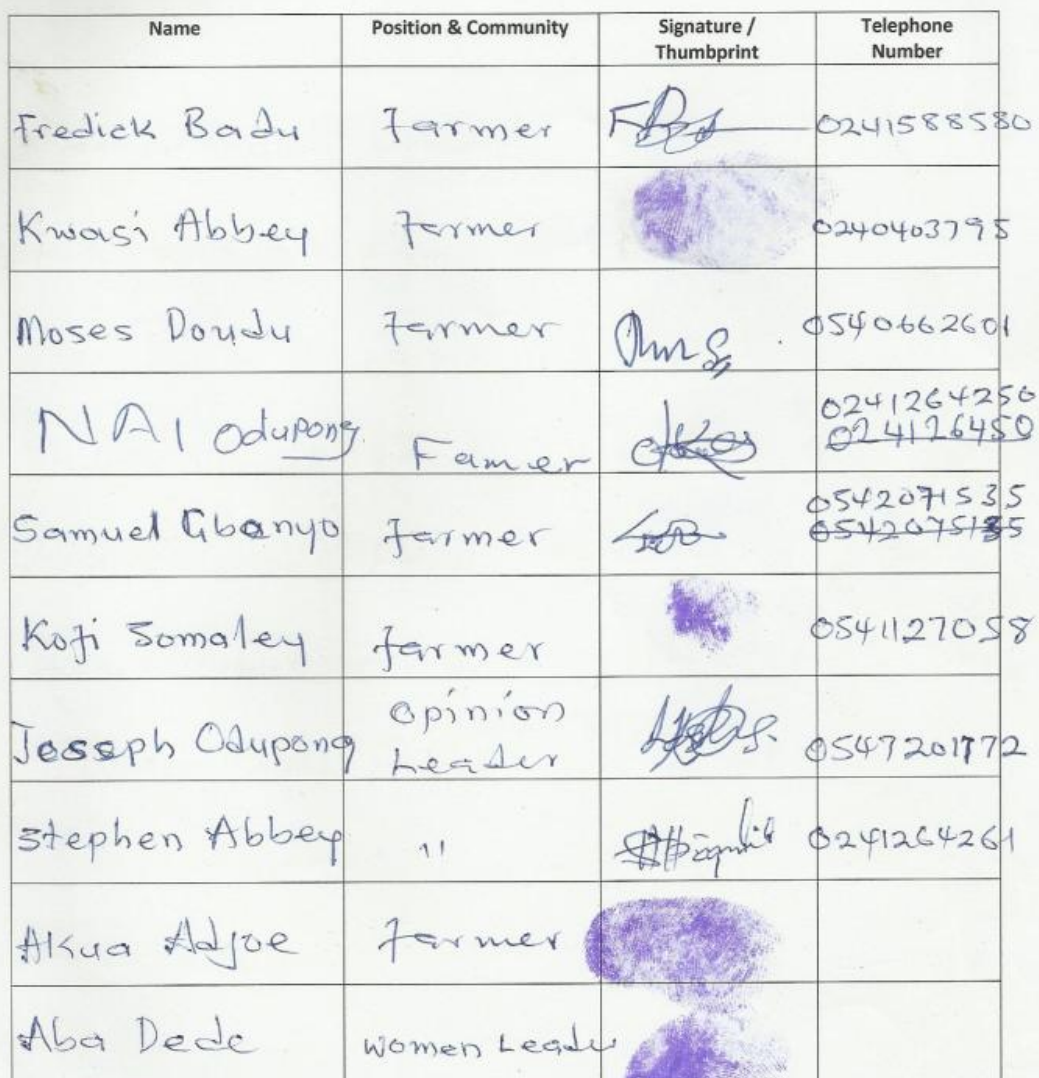 Name Position & Community Signature / Thumbprint Telephone Number
Fredick Badu Farmer 0241588580
Kwasi Abbey Farmer 0240403795
Moses Doudu Farmer 0540662601
NAI Odupong Famer 0241264250
024126450
Samuel Gbanyo farmer 0542071535
0542075135
Kofi Somaley farmer 0541127058
Joseph Odupong Opinion Leader 0547201772
Stephen Abbey " 0241264261
Akua Adjoe farmer
Aba Dede Women Leader